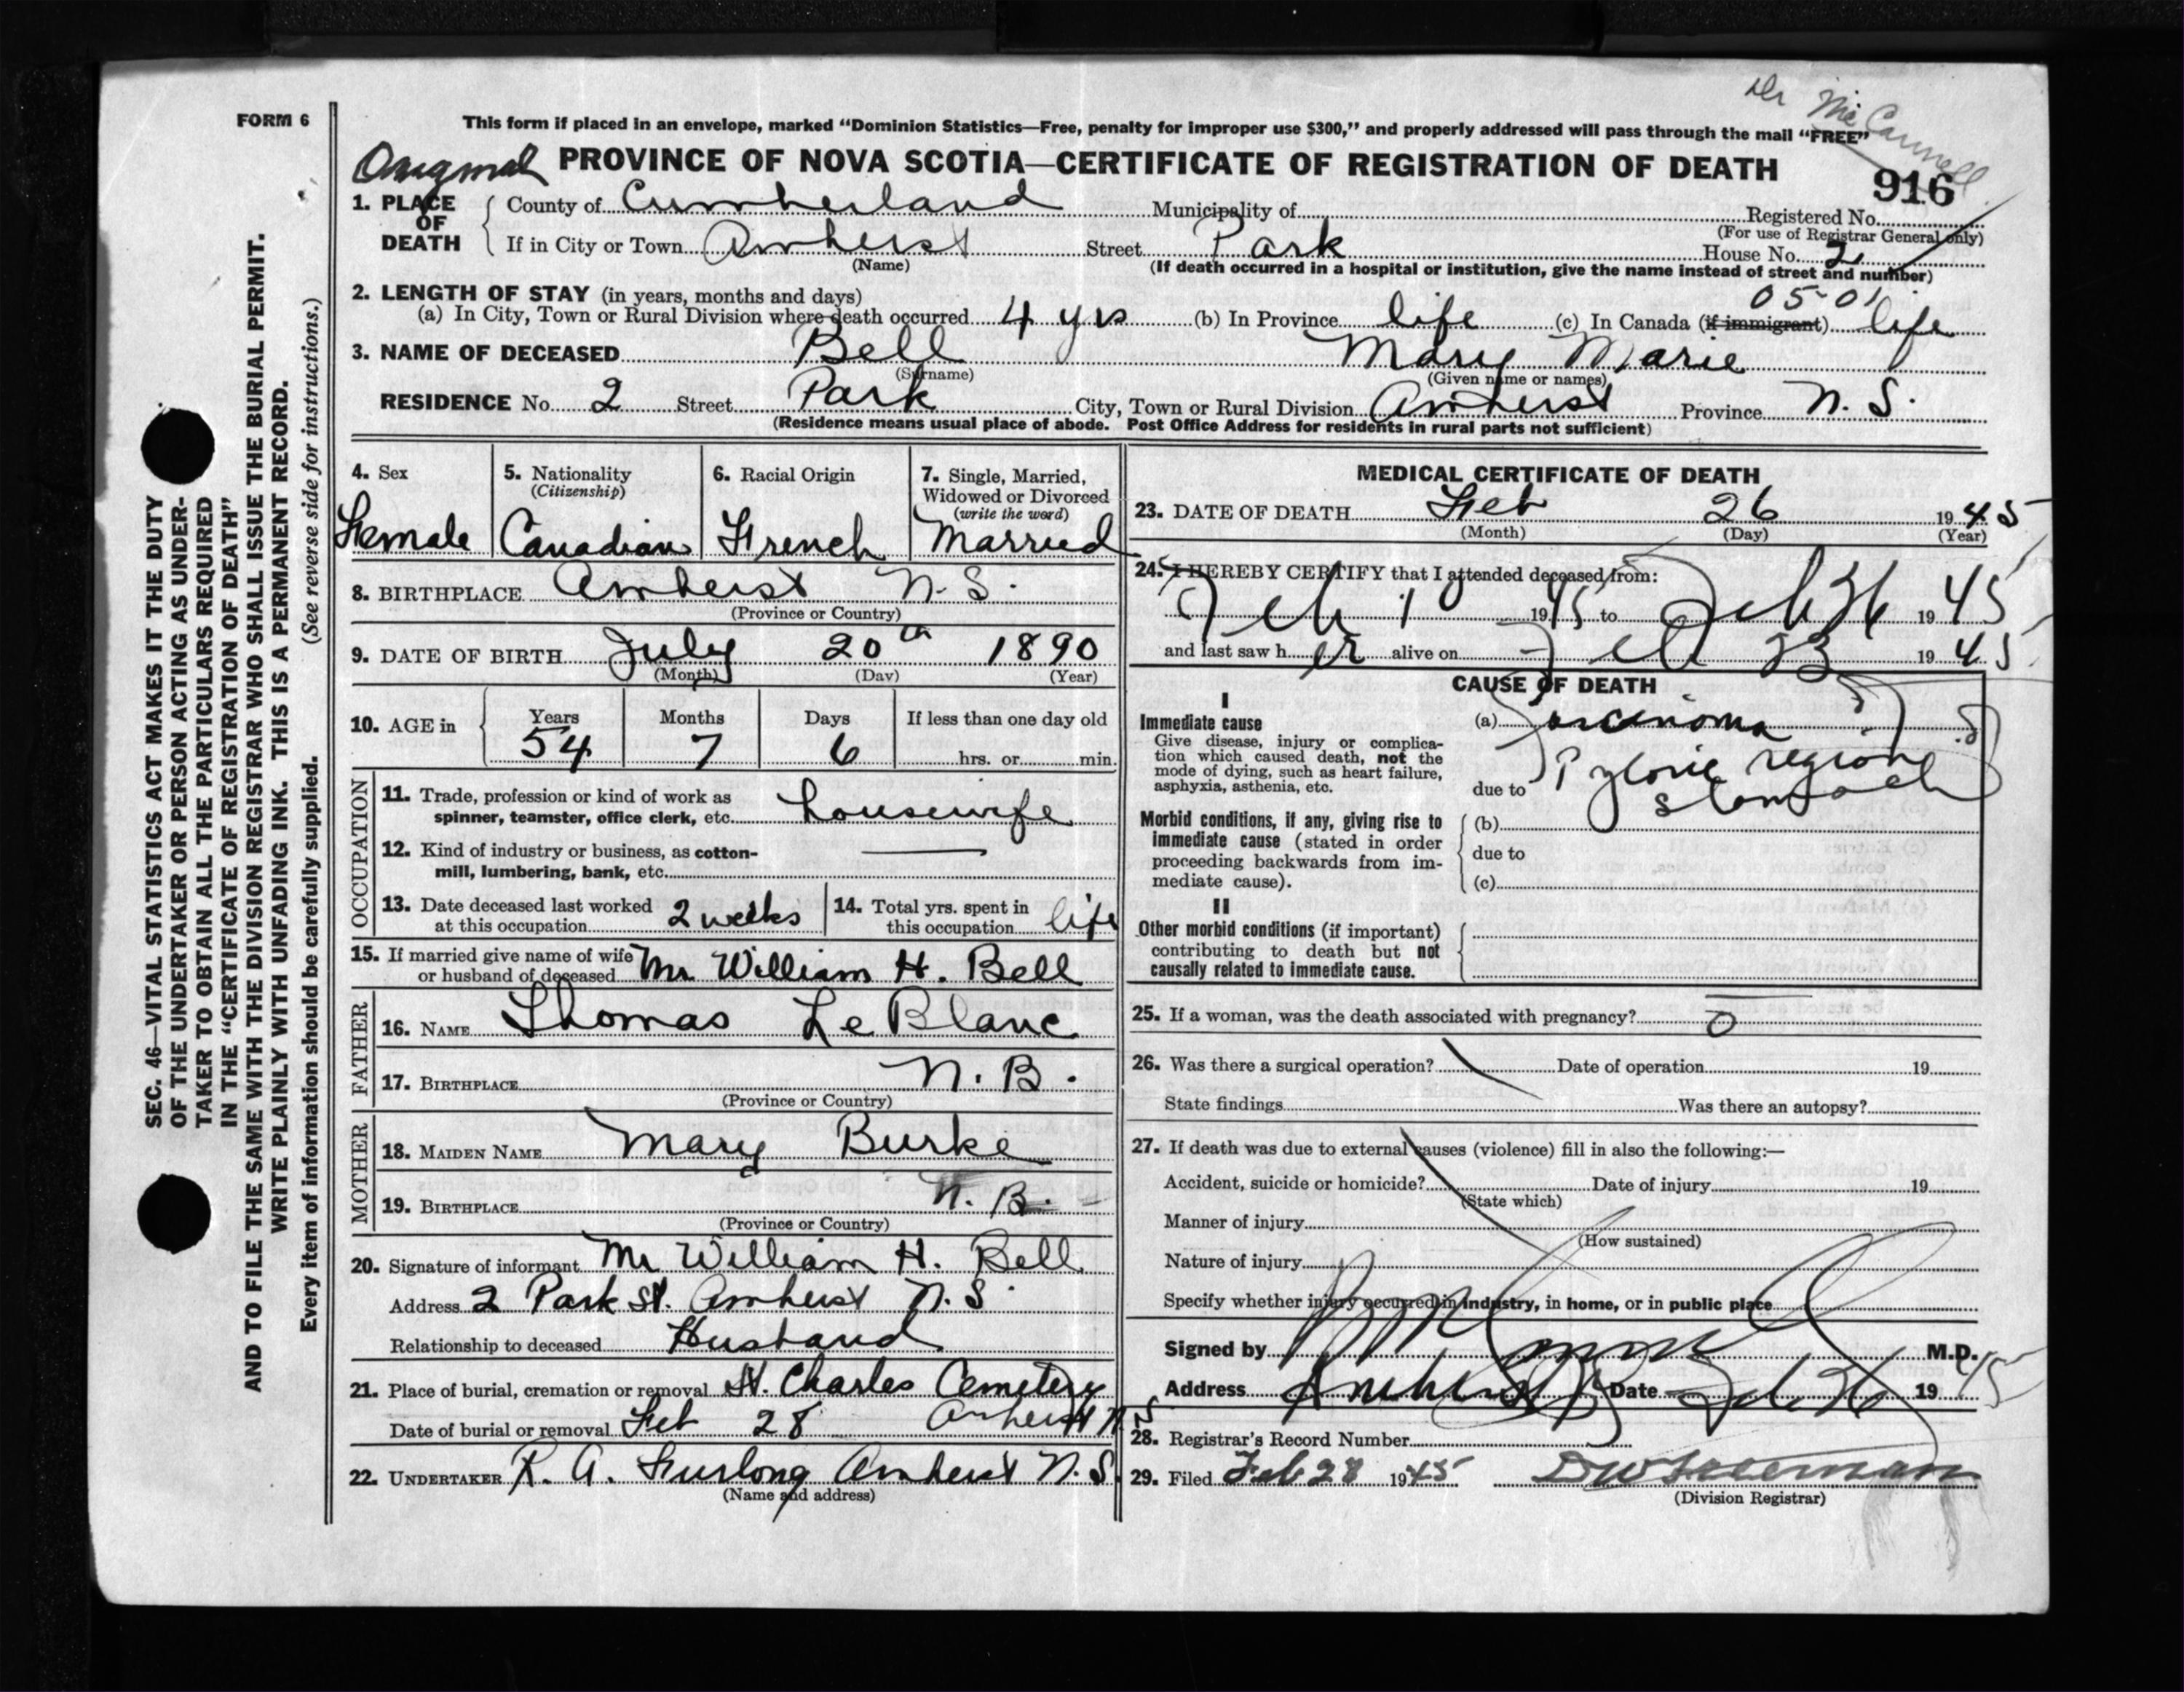 Dr McCannell
FORM 6
This form if placed in an envelope, marked “Dominion Statistics—Free, penalty for improper use $300,” and properly addressed will pass through the mail “FREE”
Original PROVINCE OF NOVA SCOTIA—CERTIFICATE OF REGISTRATION OF DEATH
916
1. PLACE OF DEATH
County of Cumberland Municipality of Registered No.
(For use of Registrar General only)
If in City or Town Amherst Street Park House No. 2
(Name) (If death occurred in a hospital or institution, give the name instead of street and number)
2. LENGTH OF STAY (in years, months and days) 05-01
(a) In City, Town or Rural Division where death occurred 4 yrs (b) In Province life (c) In Canada (if immigrant) life
3. NAME OF DECEASED Bell Mary Marie
(Surname) (Given name or names)
RESIDENCE No. 2 Street Park City, Town or Rural Division Amherst Province N. S.
(Residence means usual place of abode. Post Office Address for residents in rural parts not sufficient)
4. Sex
Female
5. Nationality
(Citizenship)
Canadian
6. Racial Origin
French
7. Single, Married,
Widowed or Divorced
(write the word)
Married
8. BIRTHPLACE Amherst N. S.
(Province or Country)
9. DATE OF BIRTH July 20th 1890
(Month) (Day) (Year)
10. AGE in Years Months Days If less than one day old
54 7 6 hrs. or min.
OCCUPATION
11. Trade, profession or kind of work as
spinner, teamster, office clerk, etc. housewife
12. Kind of industry or business, as cotton-
mill, lumbering, bank, etc.
13. Date deceased last worked
at this occupation 2 weeks
14. Total yrs. spent in
this occupation life
15. If married give name of wife
or husband of deceased Mr William H. Bell
FATHER
16. NAME Thomas LeBlanc
17. BIRTHPLACE N. B.
(Province or Country)
MOTHER
18. MAIDEN NAME Mary Burke
19. BIRTHPLACE N. B.
(Province or Country)
20. Signature of informant Mr William H. Bell
Address 2 Park St. Amherst N. S.
Relationship to deceased Husband
21. Place of burial, cremation or removal St. Charles Cemetery
Date of burial or removal Feb 28 Amherst N S
22. UNDERTAKER R. A. Furlong Amherst N. S.
(Name and address)
MEDICAL CERTIFICATE OF DEATH
23. DATE OF DEATH Feb 26 1945
(Month) (Day) (Year)
24. I HEREBY CERTIFY that I attended deceased from:
Feb 1 1945 to Feb 26 1945
and last saw her alive on Feb 23 1945
CAUSE OF DEATH
I
Immediate cause
Give disease, injury or complica-
tion which caused death, not the
mode of dying, such as heart failure,
asphyxia, asthenia, etc.
(a) Carcinoma of
due to Pyloric region
stomach
Morbid conditions, if any, giving rise to
immediate cause (stated in order
proceeding backwards from im-
mediate cause).
(b)
due to
(c)
II
Other morbid conditions (if important)
contributing to death but not
causally related to immediate cause.
25. If a woman, was the death associated with pregnancy? 0
26. Was there a surgical operation? Date of operation 19
State findings Was there an autopsy?
27. If death was due to external causes (violence) fill in also the following:—
Accident, suicide or homicide? Date of injury 19
(State which)
Manner of injury
(How sustained)
Nature of injury
Specify whether injury occurred in industry, in home, or in public place
Signed by M.D.
Address Amherst Date Feb 26 1945
28. Registrar's Record Number
29. Filed Feb 28 1945
(Division Registrar)
SEC. 46—VITAL STATISTICS ACT MAKES IT THE DUTY
OF THE UNDERTAKER OR PERSON ACTING AS UNDER-
TAKER TO OBTAIN ALL THE PARTICULARS REQUIRED
IN THE “CERTIFICATE OF REGISTRATION OF DEATH”
AND TO FILE THE SAME WITH THE DIVISION REGISTRAR WHO SHALL ISSUE THE BURIAL PERMIT.
WRITE PLAINLY WITH UNFADING INK. THIS IS A PERMANENT RECORD.
Every item of information should be carefully supplied. (See reverse side for instructions.)